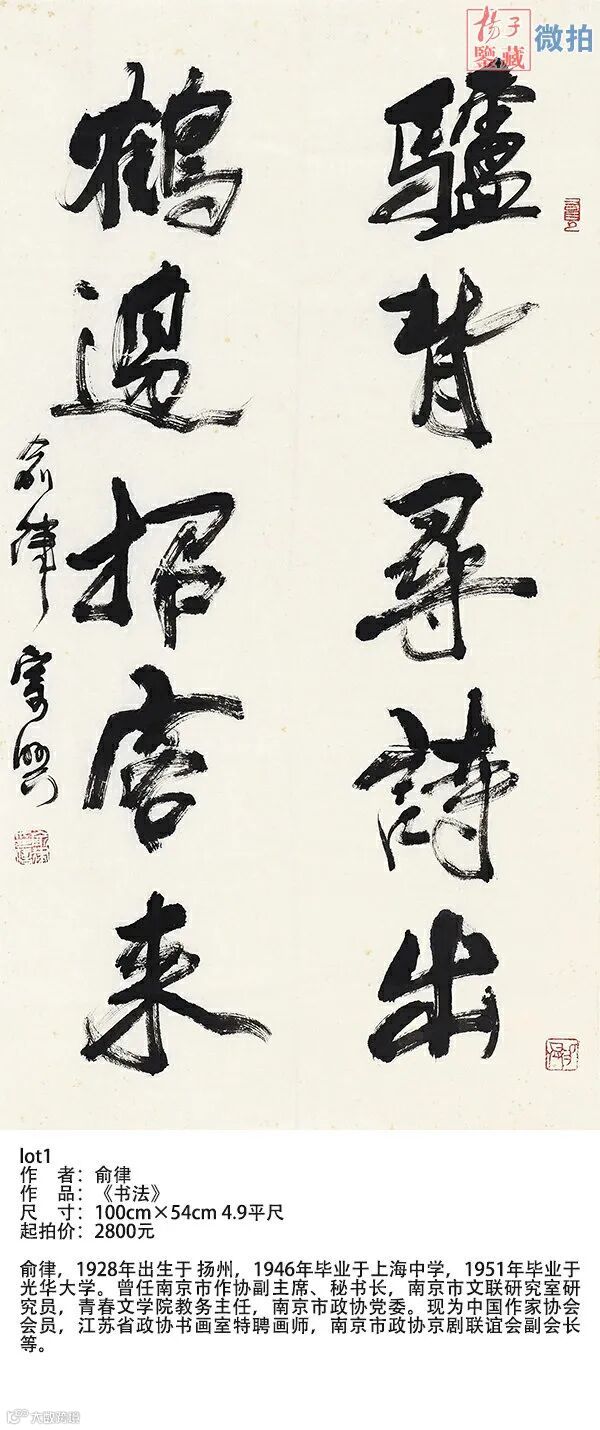 揚子
鑒藏
微拍
驢背尋詩出
鶴邊招客来
俞律寄興
lot1
作 者：俞律
作 品：《书法》
尺 寸：100cm×54cm 4.9平尺
起拍价：2800元
俞律，1928年出生于 扬州，1946年毕业于上海中学，1951年毕业于
光华大学。曾任南京市作协副主席、秘书长，南京市文联研究室研
究员，青春文学院教务主任，南京市政协党委。现为中国作家协会
会员，江苏省政协书画室特聘画师，南京市政协京剧联谊会副会长
等。
大歐跨境